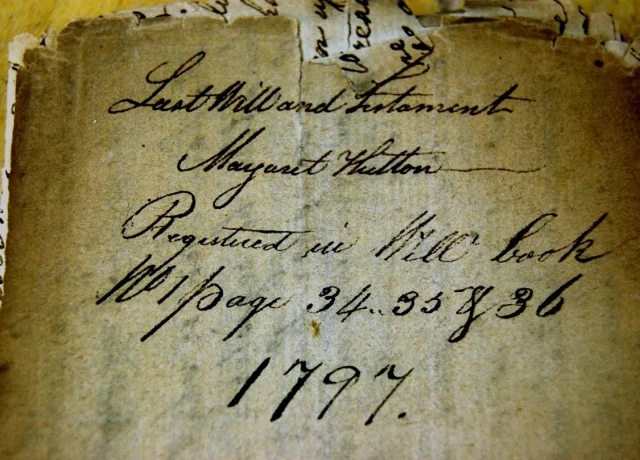 Last Will and Testament
Margaret Hutton
Registered in Will book
No 1 page 34..35 & 36
1797.